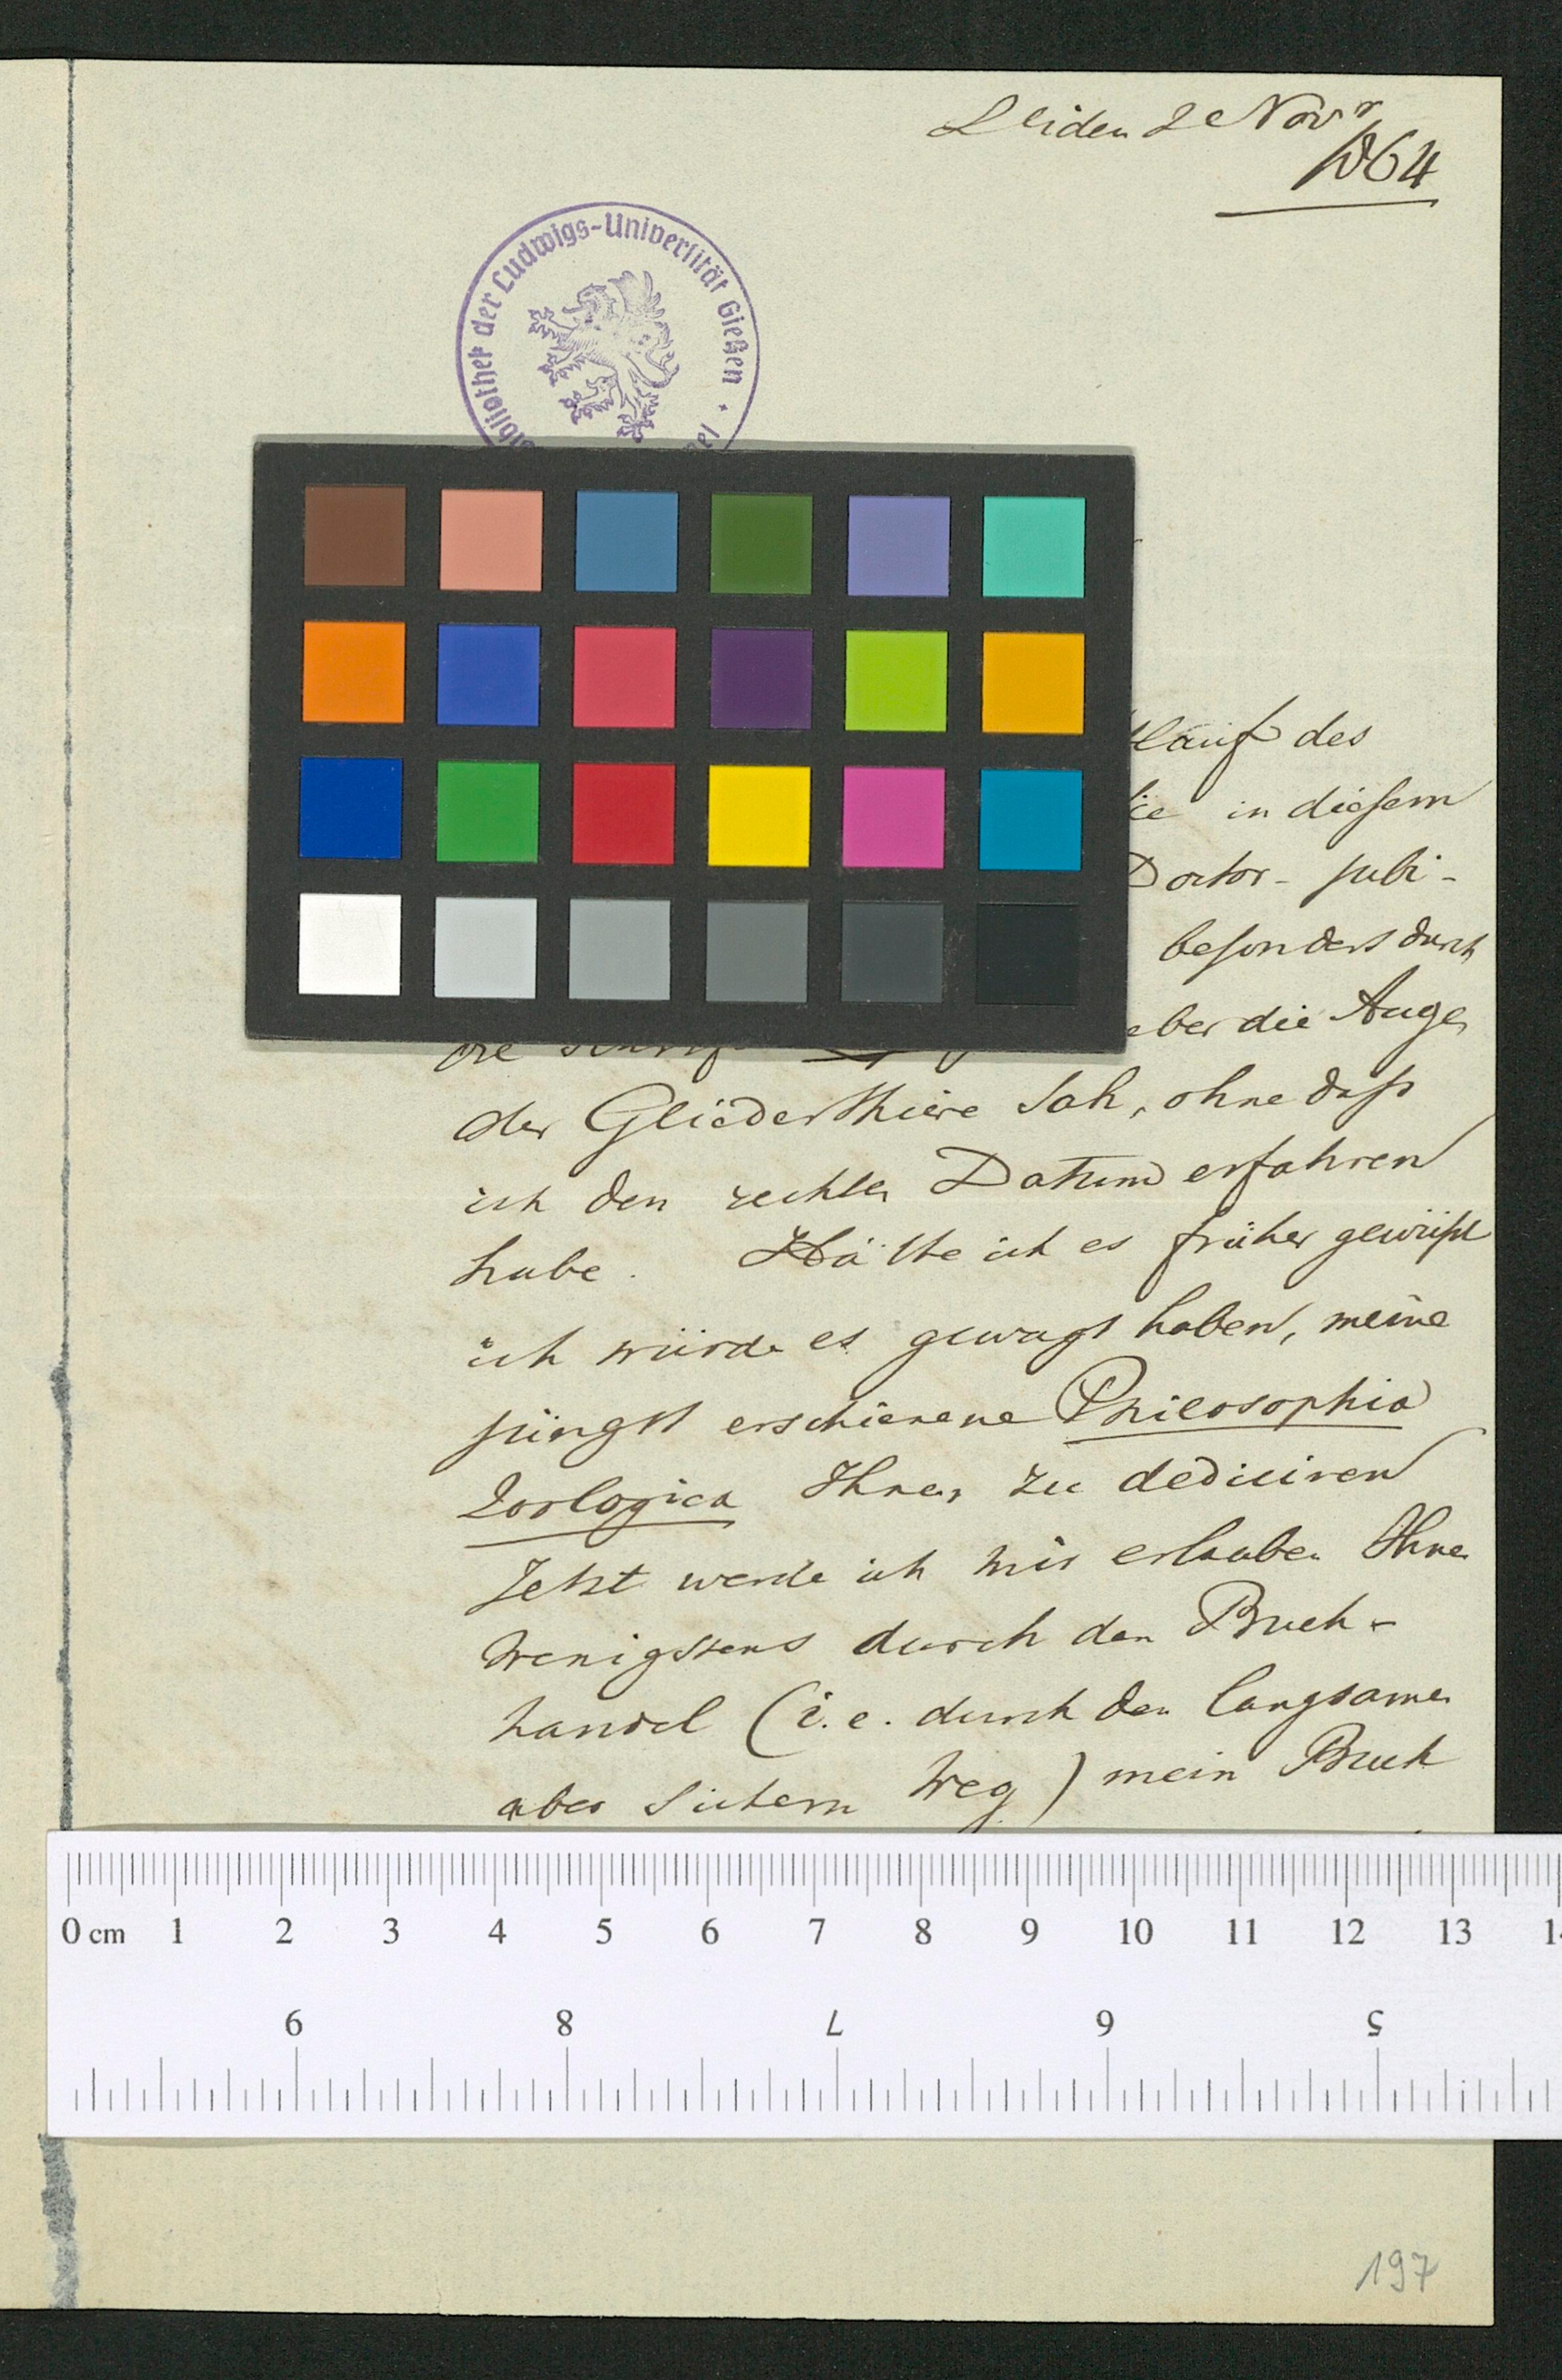 Leiden 2 Novr
1864
Bibliothek der Ludwigs-Universität Gießen
lauf des
in diesem
Doctor-jubi-
besonders durch
die Schrift
über die Augen
der Gliederthiere sah, ohne dass
ich den rechten Datum erfahren
habe. Hätte ich es früher gewüsst
ich würde es gewagt haben, meine
jüngst erschienene Philosophia
Zoologica Ihnen zu dediciren
Jetzt werde ich mir erlauben Ihnen
wenigstens durch den Buch-
handel (i.e. durch den langsamen
aber sichern Weg) mein Buch
0 cm 1 2 3 4 5 6 7 8 9 10 11 12 13
9 8 7 6 5
197